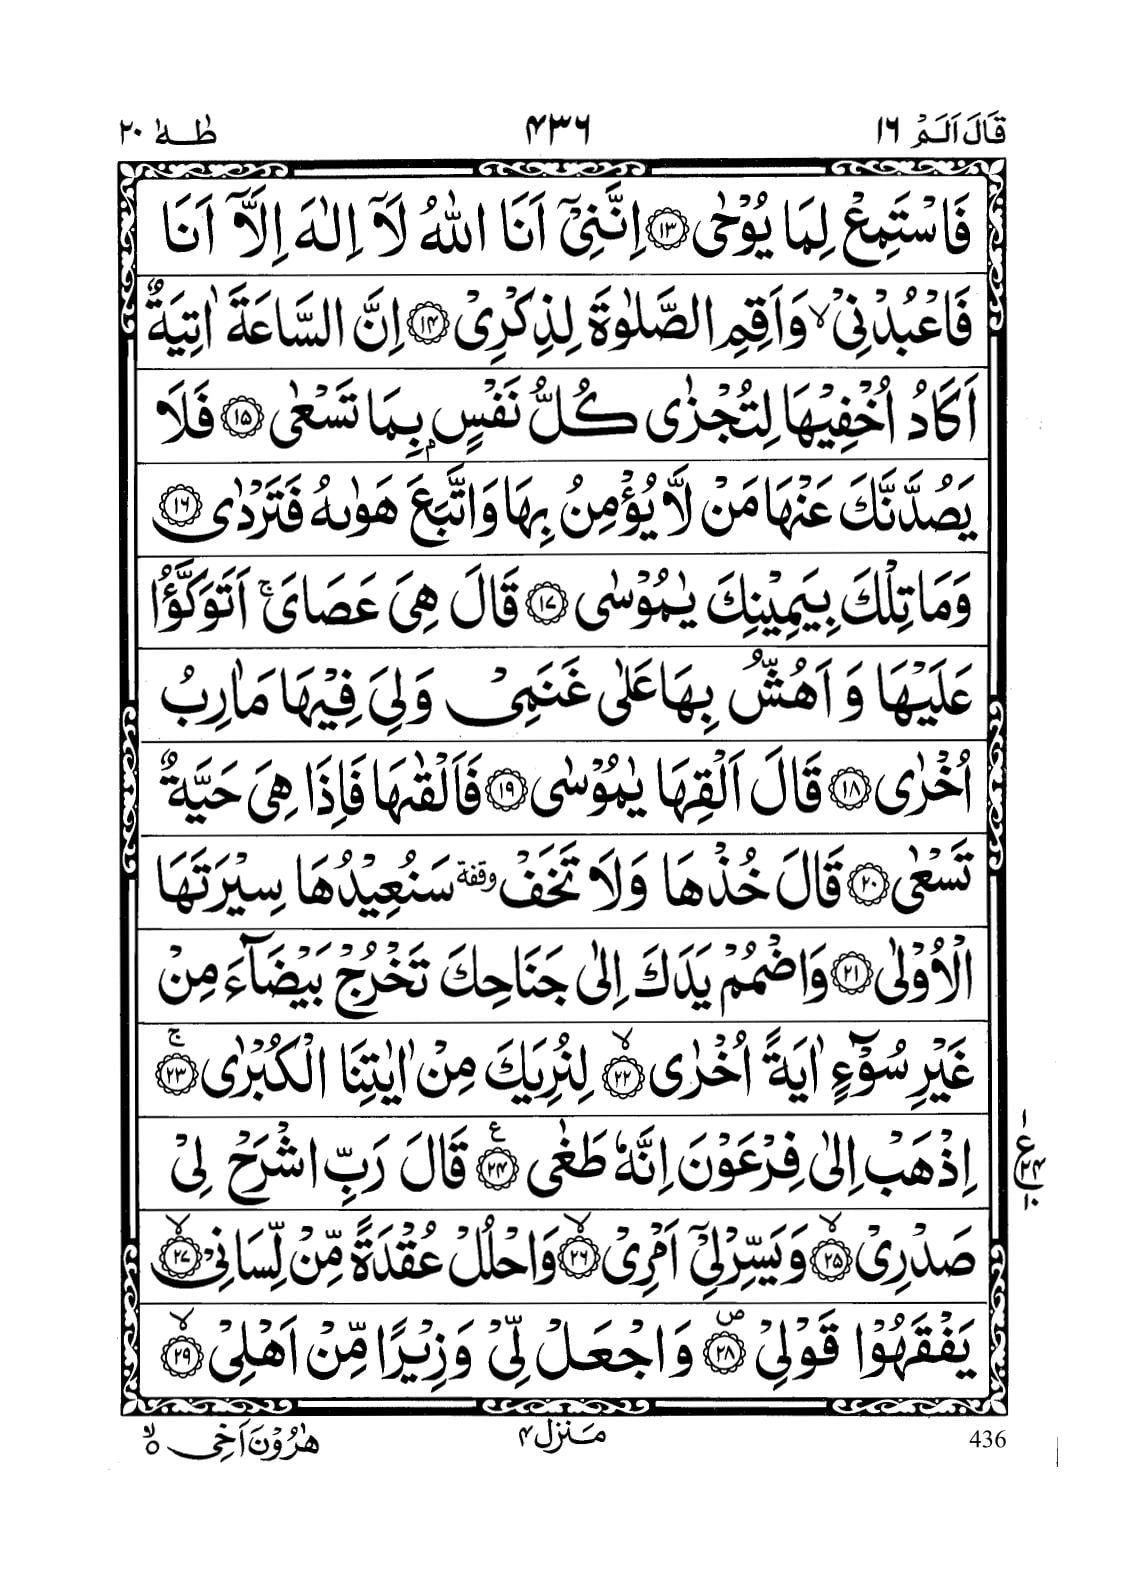 قَالَ اَلَمْ ١٦ ۴۳۶ طٰهٰ ٢٠
فَاسْتَمِعْ لِمَا يُوْحٰى ﴿١٣﴾ اِنَّنِىْۤ اَنَا اللّٰهُ لَاۤ اِلٰهَ اِلَّاۤ اَنَا
فَاعْبُدْنِىْ ۙ وَاَقِمِ الصَّلٰوةَ لِذِكْرِىْ ﴿١۴﴾ اِنَّ السَّاعَةَ اٰتِيَةٌ
اَكَادُ اُخْفِيْهَا لِتُجْزٰى كُلُّ نَفْسٍۭ بِمَا تَسْعٰى ﴿١۵﴾ فَلَا
يَصُدَّنَّكَ عَنْهَا مَنْ لَّا يُؤْمِنُ بِهَا وَاتَّبَعَ هَوٰىهُ فَتَرْدٰى ﴿١٦﴾
وَمَا تِلْكَ بِيَمِيْنِكَ يٰمُوْسٰى ﴿١٧﴾ قَالَ هِىَ عَصَاىَ ۚ اَتَوَكَّؤُا
عَلَيْهَا وَ اَهُشُّ بِهَا عَلٰى غَنَمِىْ وَلِىَ فِيْهَا مَاٰرِبُ
اُخْرٰى ﴿١٨﴾ قَالَ اَلْقِهَا يٰمُوْسٰى ﴿١٩﴾ فَاَلْقٰىهَا فَاِذَا هِىَ حَيَّةٌ
تَسْعٰى ﴿٢٠﴾ قَالَ خُذْهَا وَلَا تَخَفْ وقفة سَنُعِيْدُهَا سِيْرَتَهَا
الْاُوْلٰى ﴿٢١﴾ وَاضْمُمْ يَدَكَ اِلٰى جَنَاحِكَ تَخْرُجْ بَيْضَآءَ مِنْ
غَيْرِ سُوْٓءٍ اٰيَةً اُخْرٰى ۙ﴿٢٢﴾ لِنُرِيَكَ مِنْ اٰيٰتِنَا الْكُبْرٰى ۚ﴿٢٣﴾
اِذْهَبْ اِلٰى فِرْعَوْنَ اِنَّهٗ طَغٰى ﴿٢۴﴾ ع قَالَ رَبِّ اشْرَحْ لِىْ
١ ع ٢۴ ١٠
صَدْرِىْ ۙ﴿٢۵﴾ وَيَسِّرْ لِىْۤ اَمْرِىْ ۙ﴿٢٦﴾ وَاحْلُلْ عُقْدَةً مِّنْ لِّسَانِىْ ۙ﴿٢٧﴾
يَفْقَهُوْا قَوْلِىْ ۖ﴿٢٨﴾ وَاجْعَلْ لِّىْ وَزِيْرًا مِّنْ اَهْلِىْ ۙ﴿٢٩﴾
436 مَنزل ۴ هٰرُوْنَ اَخِى ۙ٥